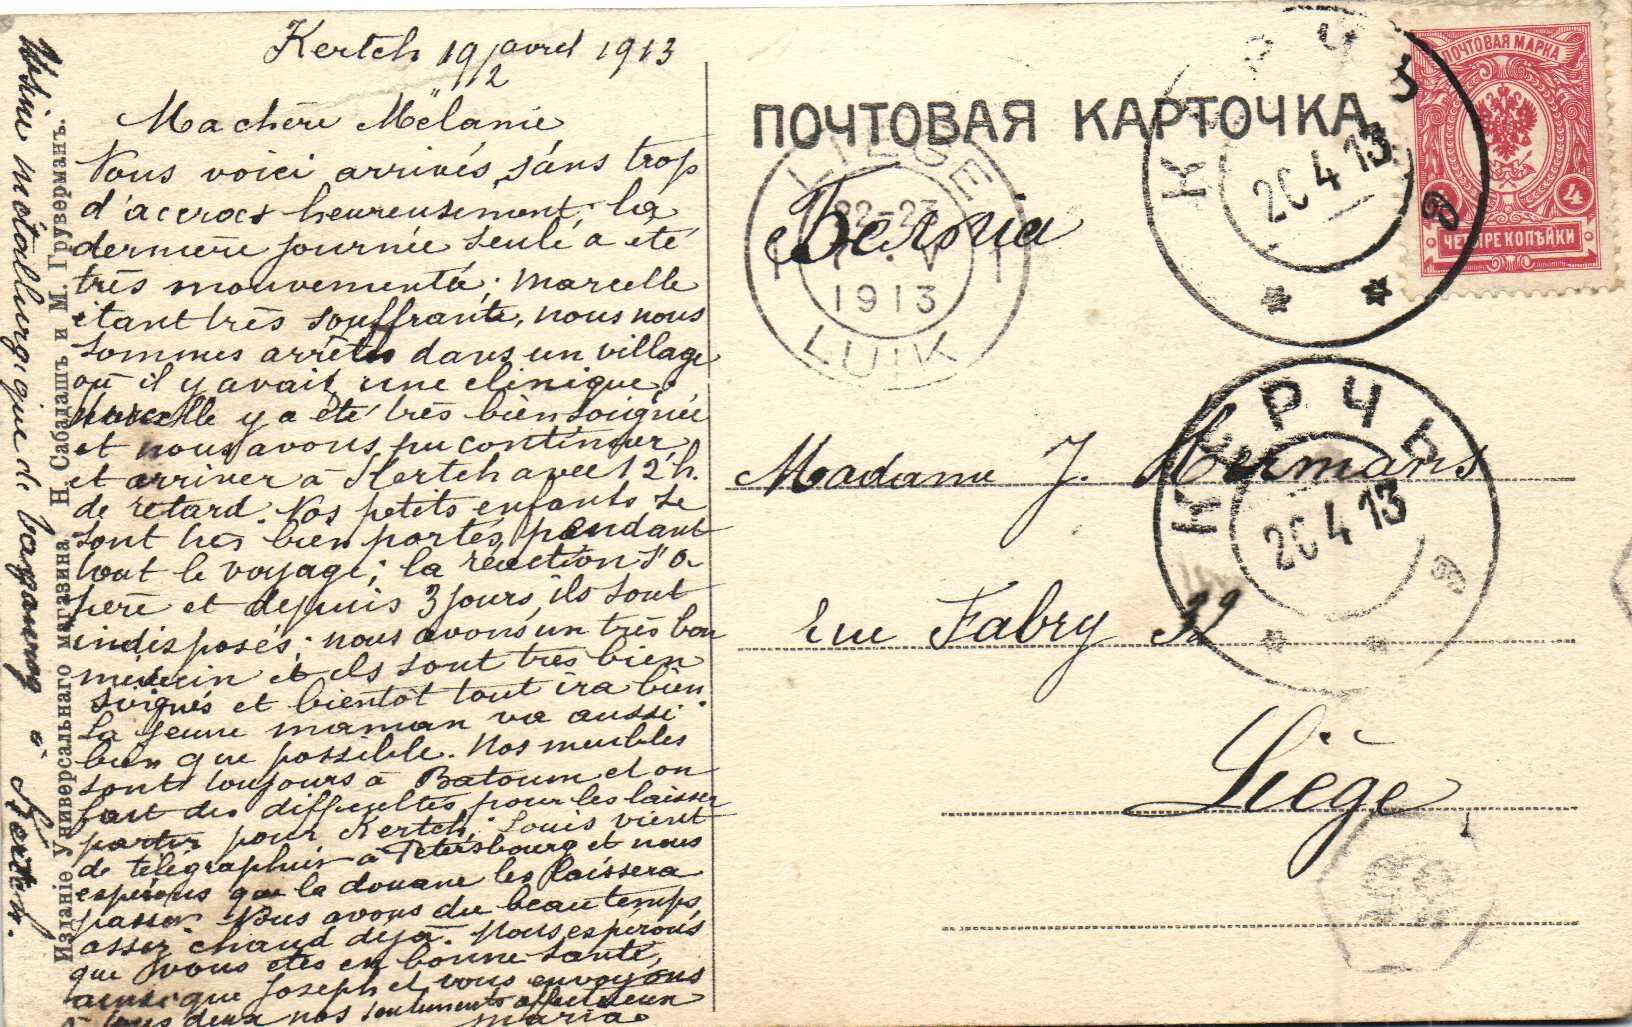 Kertch 19/2 avril 1913
Ma chère Mélanie
Nous voici arrivés sans trop
d'accrocs heureusement. La
dernière journée seule a été
très mouvementée; Marcelle
étant très souffrante, nous nous
sommes arrêtés dans un village
où il y avait une clinique.
Marcelle y a été très bien soignée
et nous avons pu continuer
et arriver à Kertch avec 12 h.
de retard. Nos petits enfants se
sont très bien portés pendant
tout le voyage; la réaction s'o
père et depuis 3 jours ils sont
indisposés; nous avons un très bon
médecin et ils sont très bien
soignés et bientôt tout ira bien.
La jeune maman va aussi
bien que possible. Nos meubles
sont toujours à Batoum et on
fait des difficultés pour les laisser
partir pour Kertch. Louis vient
de télégraphier à Petersbourg et nous
espérons que la douane les laissera
passer. Nous avons du beau temps
assez chaud déjà. Nous espérons
que vous êtes en bonne santé,
ainsi que Joseph et vous envoyons
à tous deux nos sentiments affectueux
Maria.
Usine métallurgique de Taganrog à Kertch.
Изданіе Универсальнаго магазина Н. Сабадашъ и М. Груверманъ.
ПОЧТОВАЯ КАРТОЧКА
Бельгія
Madame J. Hermans
Rue Fabry 32
Liège
LIEGE
22-23
V
1913
LUIK
КЕРЧЬ
20 4 13
КЕРЧЬ
20 4 13
ПОЧТОВАЯ МАРКА
4
ЧЕТЫРЕ КОПѢЙКИ